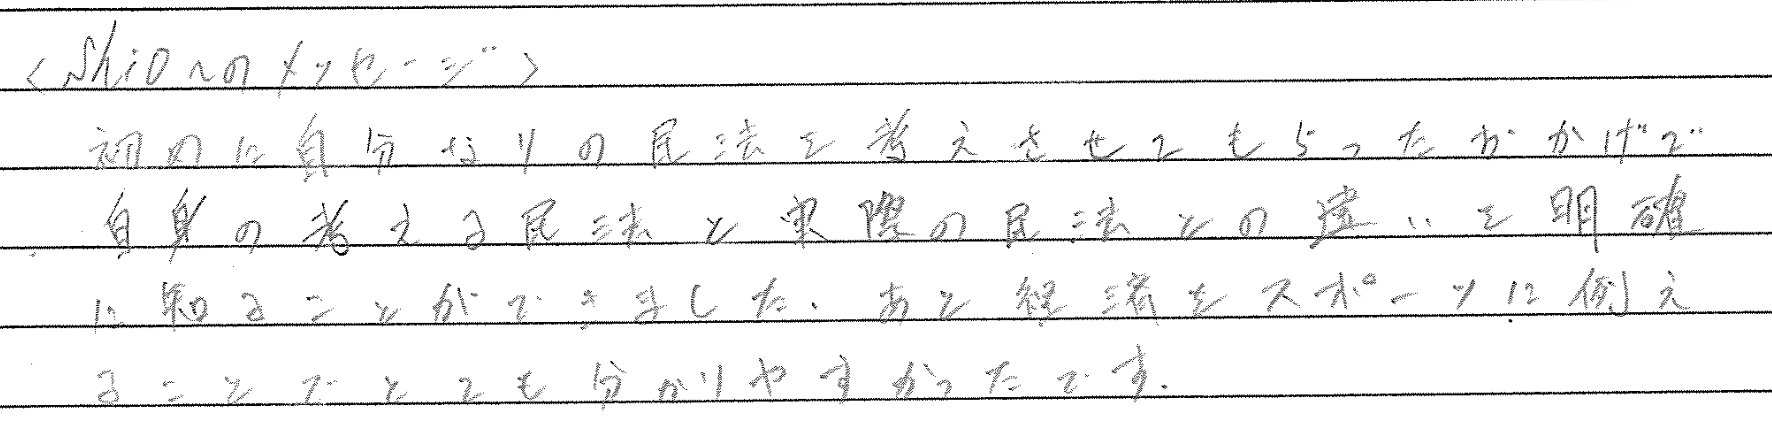 ＜ShiOへのメッセージ＞
初めに自分なりの民法を考えさせてもらったおかげで
自身の考える民法と実際の民法との違いを明確
に知ることができました。あと経済をスポーツに例え
ることでとても分かりやすかったです。